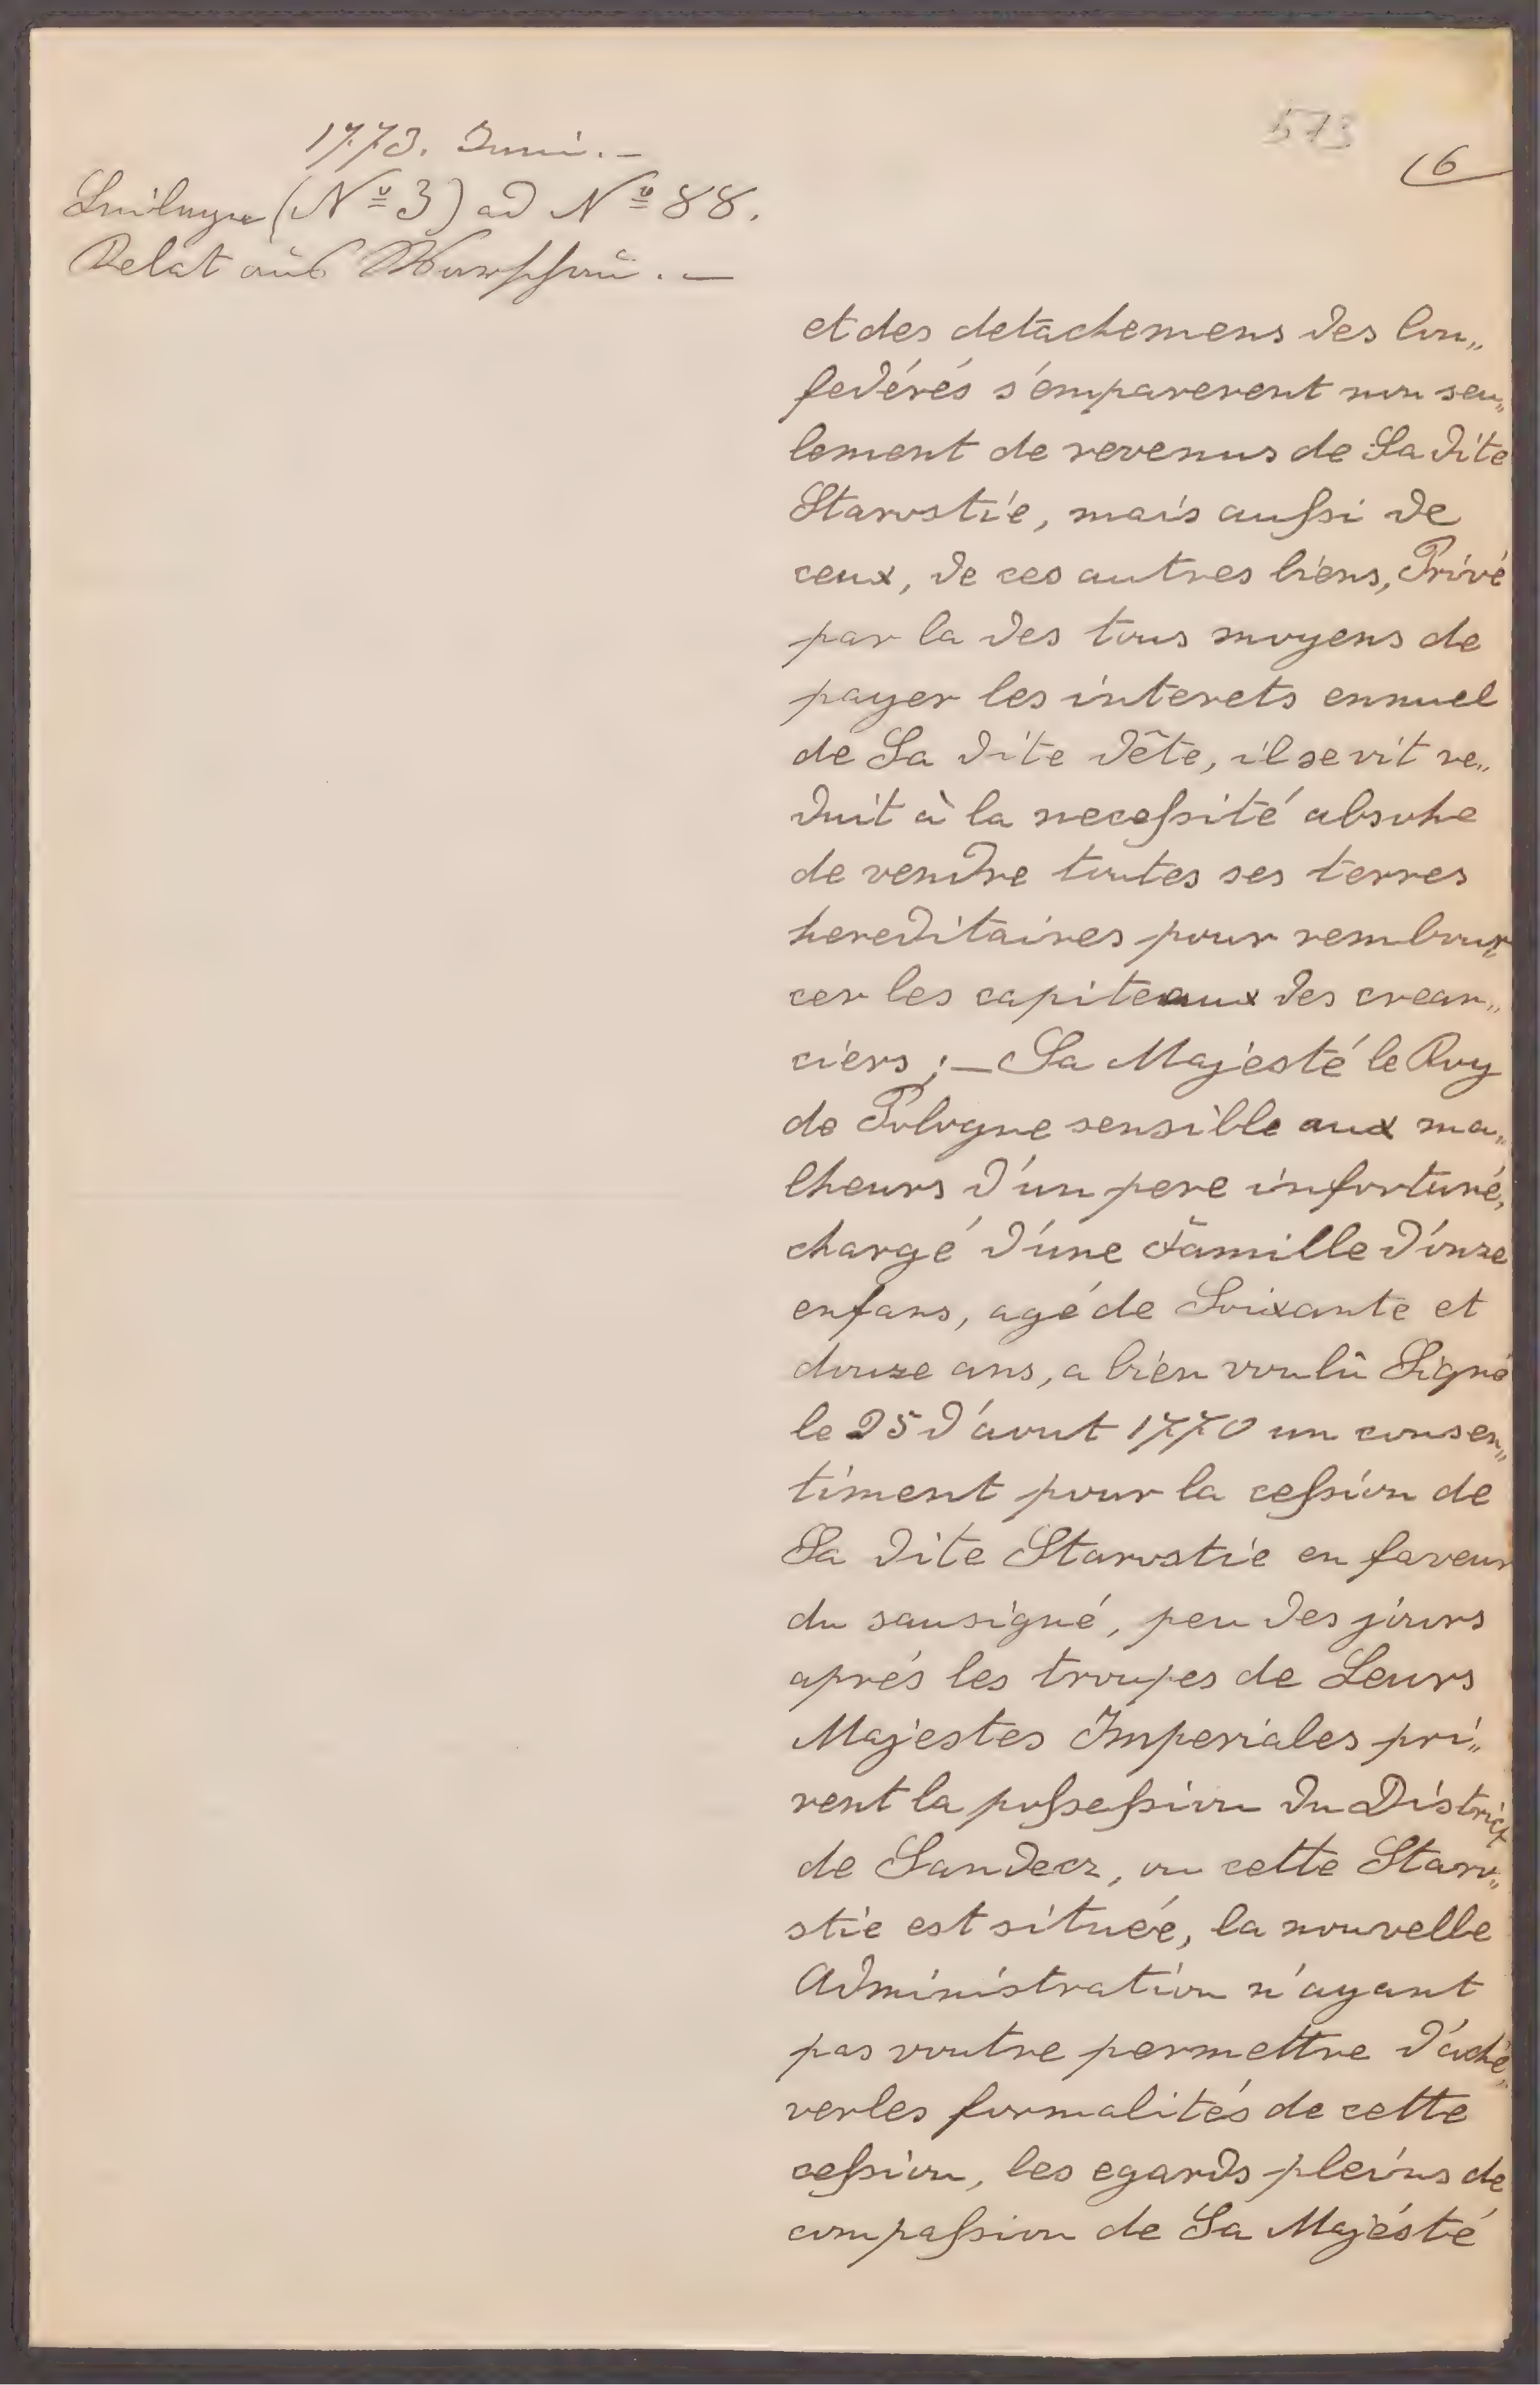 573
(6
1773. Juni. –
Beilage (Nº 3) ad Nº 88.
Relat aus Warschau. –
et des detachemens des Con„
fedérés s'emparerent non seu„
lement de revenus de Sa dite
Starostie, mais aussi de
ceux, de ces autres biens, Privé
par la des tous moyens de
payer les interets ennuel
de Sa dite dête, il se vit re„
duit à la necessité absolue
de vendre toutes ses terres
hereditaires pour rembour„
cer les capiteaux des crean„
ciers ; – Sa Majesté le Roy
de Pologne sensible aux ma„
lheurs d'un pere infortuné,
chargé d'une famille d'onze
enfans, agé de Soixante et
douze ans, a bien voulû Signé
le 25 d'aout 1770 un consen„
timent pour la cession de
Sa dite Starostie en faveur
du sousigné, peu des jours
aprés les troupes de Leurs
Majestes Imperiales pri„
rent la possession du District
de Sandecz, ou cette Staro„
stie est situeé, la nouvelle
Administration n'ayant
pas voutre permettre d'ache„
ver les formalités de cette
cession, les egards pleins de
compassion de Sa Majésté